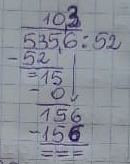 103
5356:52
-52
=15
-0
156
-156
===